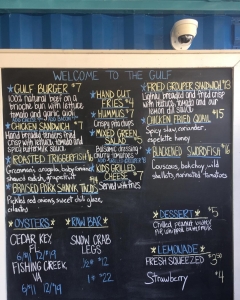 WELCOME TO THE GULF
*GULF BURGER $7
100% natural beef on a
brioche bun with lettuce
tomato and garlic aioli
*CHICKEN SANDWICH $7
Hand breaded tenders fried
crisp with lettuce, tomato and
spicy buttermilk sauce
*ROASTED TRIGGERFISH
shaved radish, grapefruit
*BRAISED PORK SHANK TACOS
Pickled red onions, sweet chili glaze,
cilantro
*HAND CUT
FRIES $4
*HUMMUS $7
Crispy pita chips
*MIXED GREEN
SALAD
Balsamic dressing
cherry tomatoes
*KIDS GRILLED
CHEESE $7
Served with fries
*FRIED GROUPER SANDWICH $13
Lightly breaded and fried crisp
with lettuce, tomato and our
lemon dill sauce
*CHICKEN FRIED QUAIL $15
Spicy slaw, coriander,
espelette honey
*BLACKENED SWORDFISH $16
Couscous, bok choy, wild
shallots, marinated tomatoes
*OYSTERS
CEDAR KEY
FL
6/$11 12/$19
FISHING CREEK
VA
6/$11 12/$19
*RAW BAR
SNOW CRAB
LEGS
½# $12
1# $22
*DESSERT $5
Chilled peanut
*LEMONADE
FRESH SQUEEZED $3.50
Strawberry $4